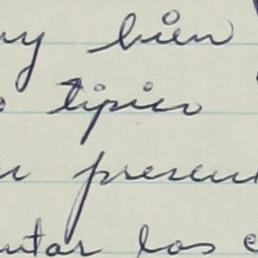 y bien
tipico
presen
ntar los